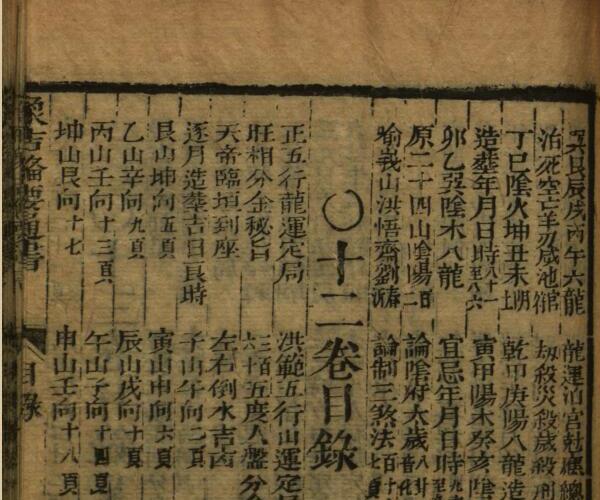 艮辰戌丙午六龍　龍運泊宮尅應總
泊死空亡羊刃咸池　刼殺災殺歲殺刑
丁巳陰火坤丑未　乾甲庚陽八龍造
造塟年月日時　寅甲陽木癸亥陰
夘乙陰木八龍　宜忌年月日時
原二十四山陰陽　論陰府大歲
山洪悟齋劉　論制三煞法
〇十二卷目錄
正五行龍運定局　洪範五行山運定
旺相分金秘旨　三百六十五度人盤分金
天帝臨垣到座　左右倒水吉凶
逐月造塟吉日良時　子山午向二頁
艮山坤向五頁　寅山申向六頁
乙山辛向九頁　辰山戌向十頁
丙山壬向十三頁　午山子向十四頁
坤山艮向十七　申山壬向十八頁
象吉備要通書　目錄